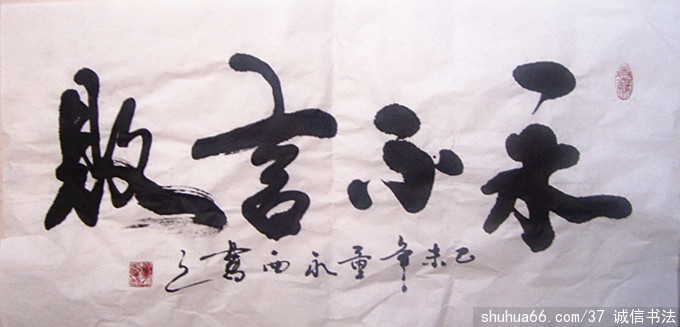 永不言敗
己未年童永西之
shuhua66.com/37 诚信书法